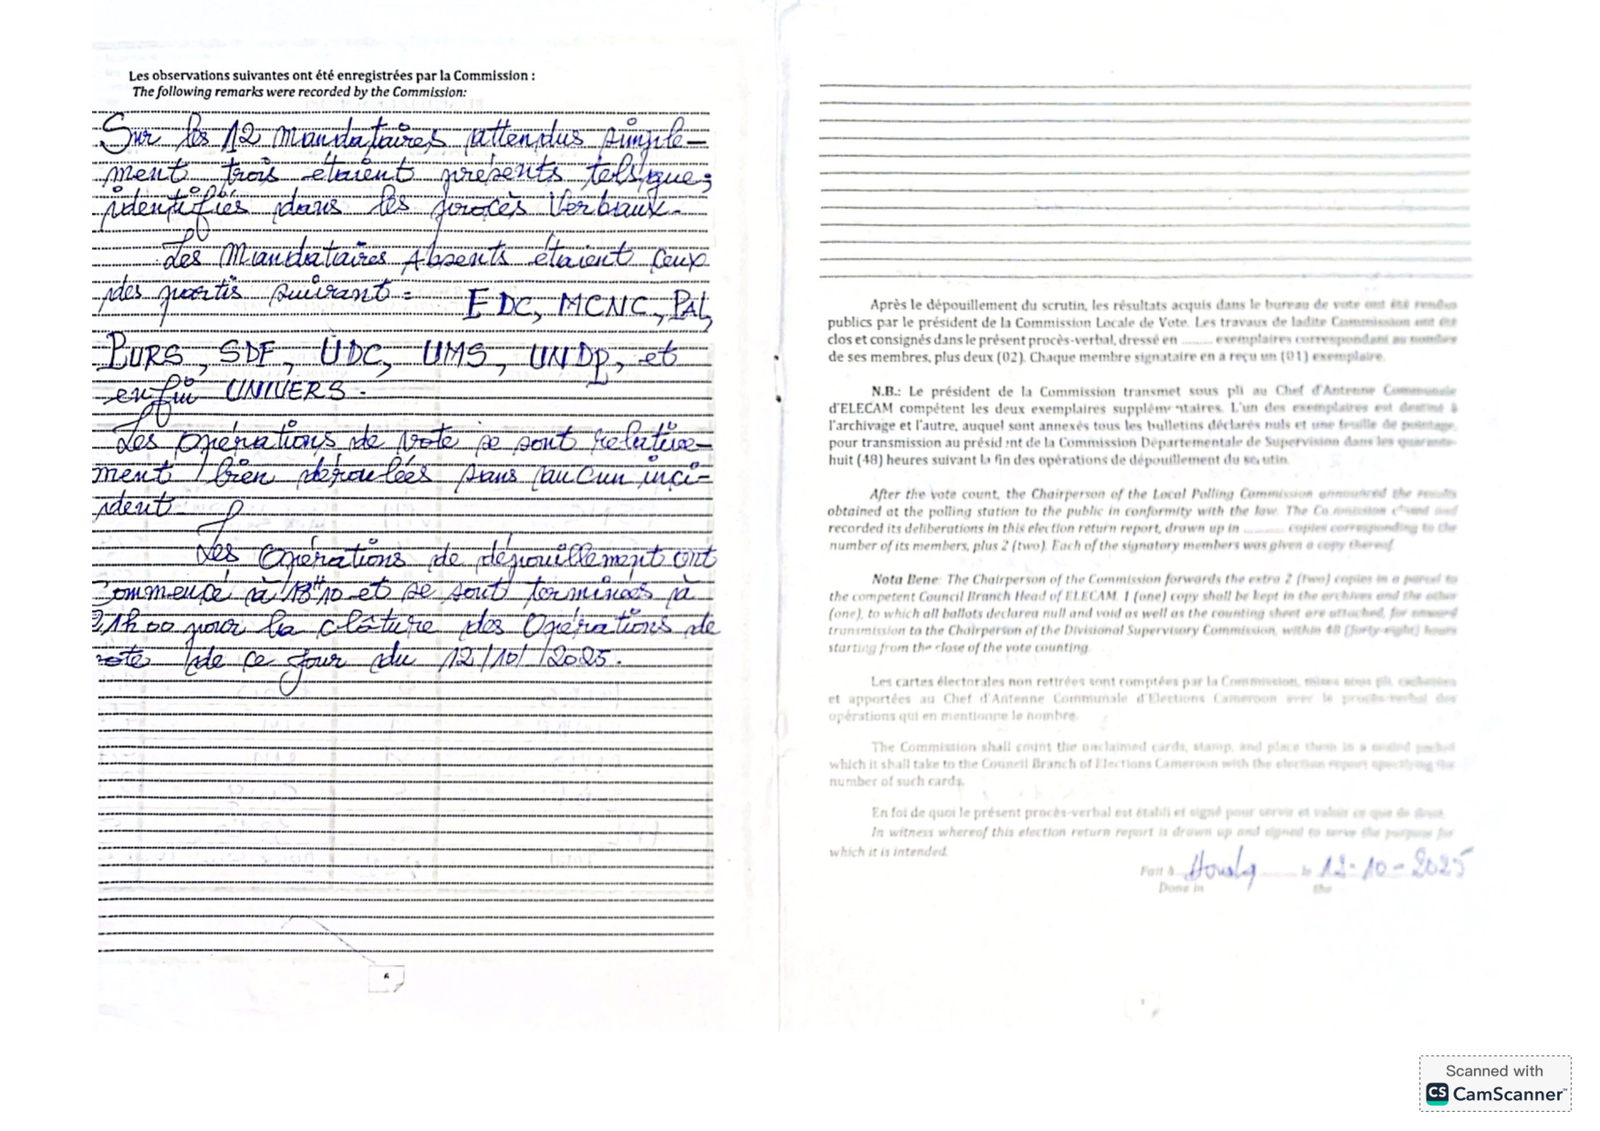 Les observations suivantes ont été enregistrées par la Commission :
The following remarks were recorded by the Commission:
Sur les 12 Mandataires attendus simple-
ment trois étaient présents tels que
identifiés dans les procès Verbaux.
Les Mandataires Absents étaient ceux
des partis suivant : EDC, MCNC, PAL,
PURS, SDF, UDC, UMS, UNDP, et
enfin UNIVERS.
Les Opérations de vote se sont relative-
ment bien déroulées sans aucun inci-
dent
Les Opérations de dépouillement ont
Commencé à 18H10 et se sont terminées à
21h00 pour la clôture des Opérations de
vote de ce jour du 12/10/2025.
6
Après le dépouillement du scrutin, les résultats acquis dans le bureau de vote ont été rendus
publics par le président de la Commission Locale de Vote. Les travaux de ladite Commission ont été
clos et consignés dans le présent procès-verbal, dressé en ........ exemplaires correspondant au nombre
de ses membres, plus deux (02). Chaque membre signataire en a reçu un (01) exemplaire.
N.B.: Le président de la Commission transmet sous pli au Chef d'Antenne Communale
d'ELECAM compétent les deux exemplaires supplémentaires. L'un des exemplaires est destiné à
l'archivage et l'autre, auquel sont annexés tous les bulletins déclarés nuls et une feuille de pointage,
pour transmission au président de la Commission Départementale de Supervision dans les quarante-
huit (48) heures suivant la fin des opérations de dépouillement du scrutin.
After the vote count, the Chairperson of the Local Polling Commission announced the results
obtained at the polling station to the public in conformity with the law. The Commission closed and
recorded its deliberations in this election return report, drawn up in .......... copies corresponding to the
number of its members, plus 2 (two). Each of the signatory members was given a copy thereof.
Nota Bene: The Chairperson of the Commission forwards the extra 2 (two) copies in a parcel to
the competent Council Branch Head of ELECAM. 1 (one) copy shall be kept in the archives and the other
(one), to which all ballots declared null and void as well as the counting sheet are attached, for onward
transmission to the Chairperson of the Divisional Supervisory Commission, within 48 (forty-eight) hours
starting from the close of the vote counting.
Les cartes électorales non retirées sont comptées par la Commission, mises sous pli, cachetées
et apportées au Chef d'Antenne Communale d'Elections Cameroon avec le procès-verbal des
opérations qui en mentionne le nombre.
The Commission shall count the unclaimed cards, stamp, and place them in a sealed packet
which it shall take to the Council Branch of Elections Cameroon with the election report specifying the
number of such cards.
En foi de quoi le présent procès-verbal est établi et signé pour servir et valoir ce que de droit.
In witness whereof this election return report is drawn up and signed to serve the purpose for
which it is intended.
Fait à le 12-10-2025
Done in the
Scanned with
CS CamScanner